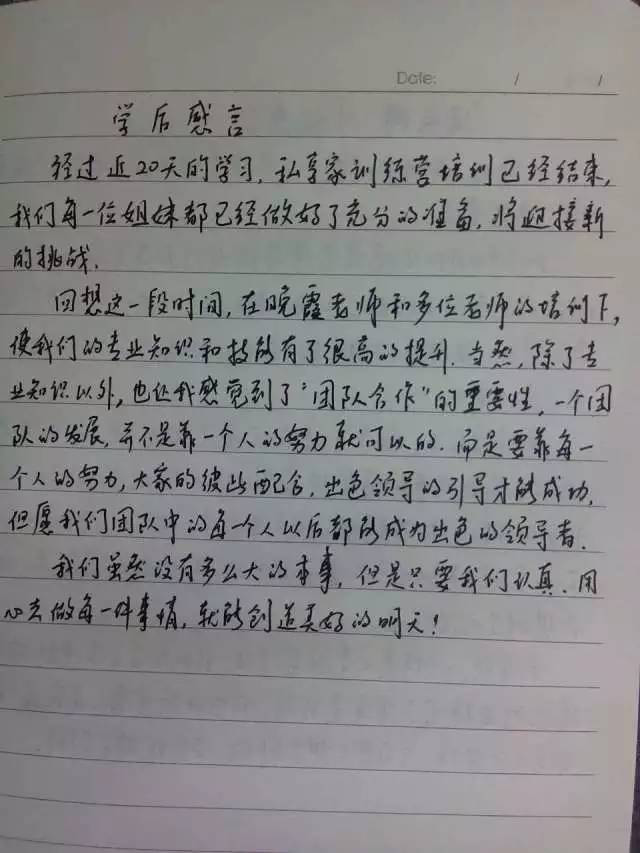 Date: / /
学后感言
经过近20天的学习,私享家训练营培训已经结束,
我们每一位姐妹都已经做好了充分的准备,将迎接新
的挑战.
回想这一段时间,在晚霞老师和多位老师的培训下,
使我们的专业知识和技能有了很高的提升.当然,除了专
业知识以外,也让我感觉到了"团队合作"的重要性,一个团
队的发展,并不是靠一个人的努力就可以的.而是要靠每一
个人的努力,大家的彼此配合,出色领导的引导才能成功,
但愿我们团队中的每一个人以后都能成为出色的领导者.
我们虽然没有多么大的本事,但是只要我们认真.用
心去做每一件事情,就能创造美好的明天!